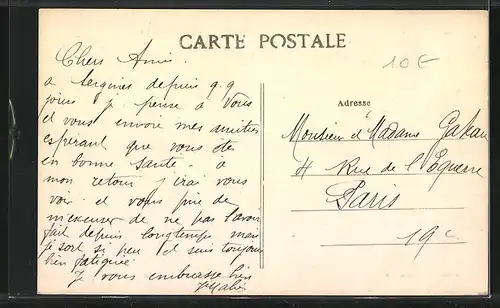 CARTE POSTALE
10€
Chers Amis
a Sergines depuis q.q
jours je pense à Vous
et vous envoie mes amitiées
espérant que vous êtes
en bonne santé - à
mon retour j'irai vous
voir et vous prie de
m'excuser de ne pas l'avoir
fait depuis longtemps mais
je sort si peu et suis toujours
bien fatiguée
Je vous embrasse bien
Adresse
Monsieur et Madame
4 Rue de l'Equerre
Paris
19e